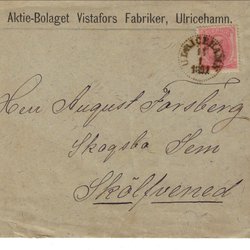 Aktie-Bolaget Vistafors Fabriker, Ulricehamn.
ULRICEHAMN
Herr August Forsberg
Skogsbo Sem
Skölfvened